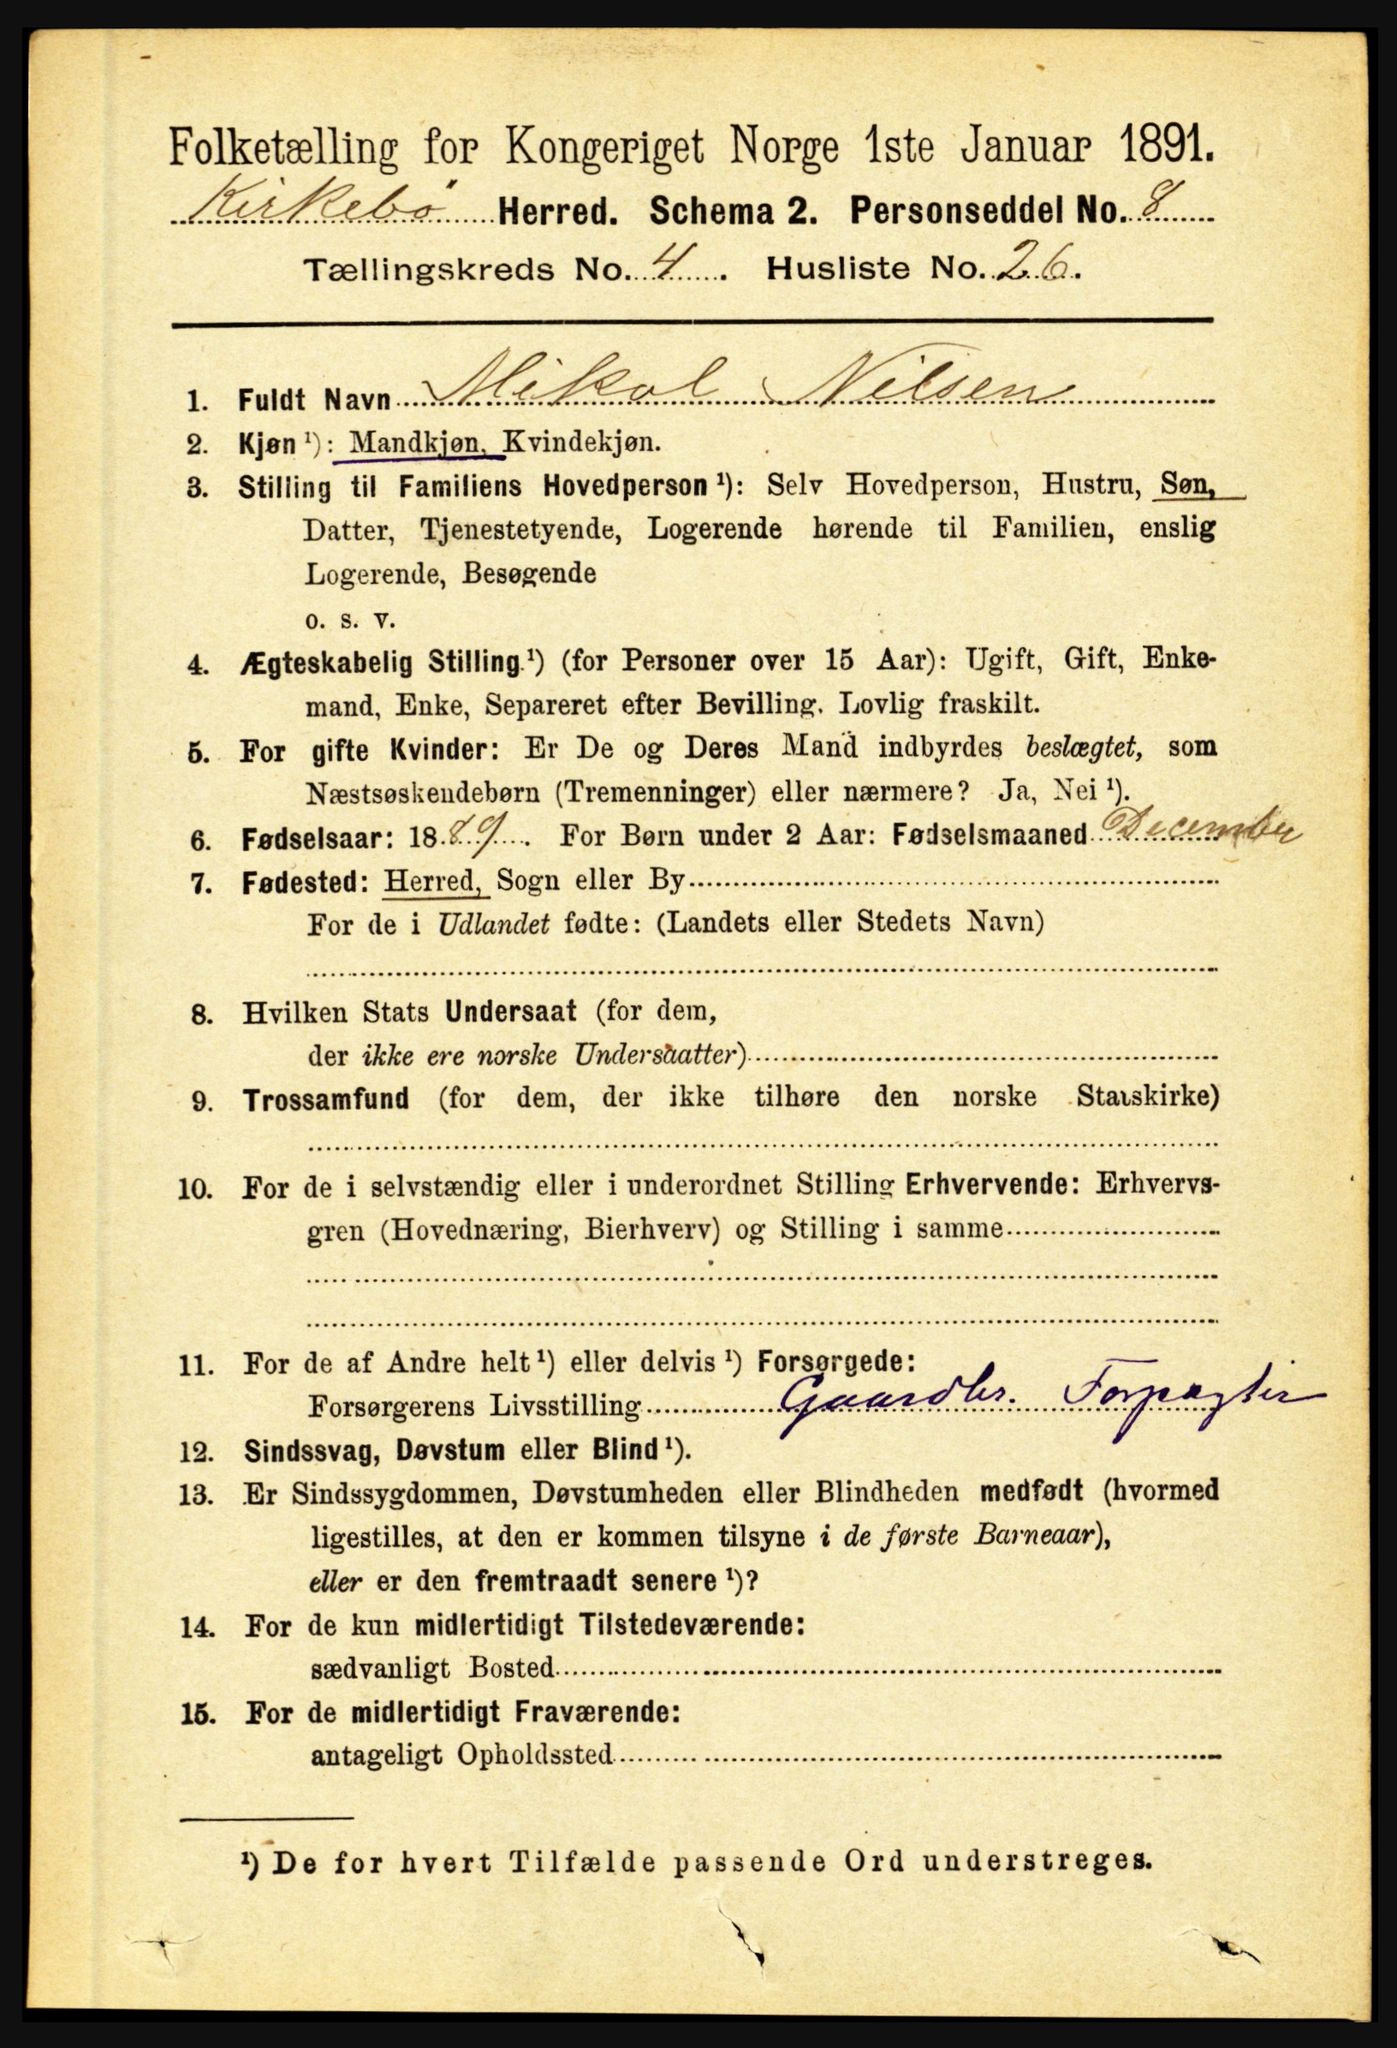 Folketælling for Kongeriget Norge 1ste Januar 1891.
Kirkebö Herred. Schema 2. Personseddel No. 8
Tællingskreds No. 4. Husliste No. 26.
1. Fuldt Navn Mikal Nilsen
2. Kjøn ¹): Mandkjøn, Kvindekjøn.
3. Stilling til Familiens Hovedperson ¹): Selv Hovedperson, Hustru, Søn,
Datter, Tjenestetyende, Logerende hørende til Familien, enslig
Logerende, Besøgende
o. s. v.
4. Ægteskabelig Stilling.¹) (for Personer over 15 Aar): Ugift, Gift, Enke-
mand, Enke, Separeret efter Bevilling. Lovlig fraskilt.
5. For gifte Kvinder: Er De og Deres Mand indbyrdes beslægtet, som
Næstsøskendebørn (Tremenninger) eller nærmere? Ja, Nei ¹).
6. Fødselsaar: 1889. For Børn under 2 Aar: Fødselsmaaned December
7. Fødested: Herred, Sogn eller By
For de i Udlandet fødte: (Landets eller Stedets Navn)
8. Hvilken Stats Undersaat (for dem,
der ikke ere norske Undersaatter)
9. Trossamfund (for dem, der ikke tilhøre den norske Statskirke)
10. For de i selvstændig eller i underordnet Stilling Erhvervende: Erhvervs-
gren (Hovednæring, Bierhverv) og Stilling i samme
11. For de af Andre helt ¹) eller delvis ¹) Forsørgede:
Forsørgerens Livsstilling Gaardbr. Forpagter
12. Sindssvag, Døvstum eller Blind ¹).
13. Er Sindssygdommen, Døvstumheden eller Blindheden medfødt (hvormed
ligestilles, at den er kommen tilsyne i de første Barneaar),
eller er den fremtraadt senere ¹)?
14. For de kun midlertidigt Tilstedeværende:
sædvanligt Bosted
15. For de midlertidigt Fraværende:
antageligt Opholdssted
¹) De for hvert Tilfælde passende Ord understreges.